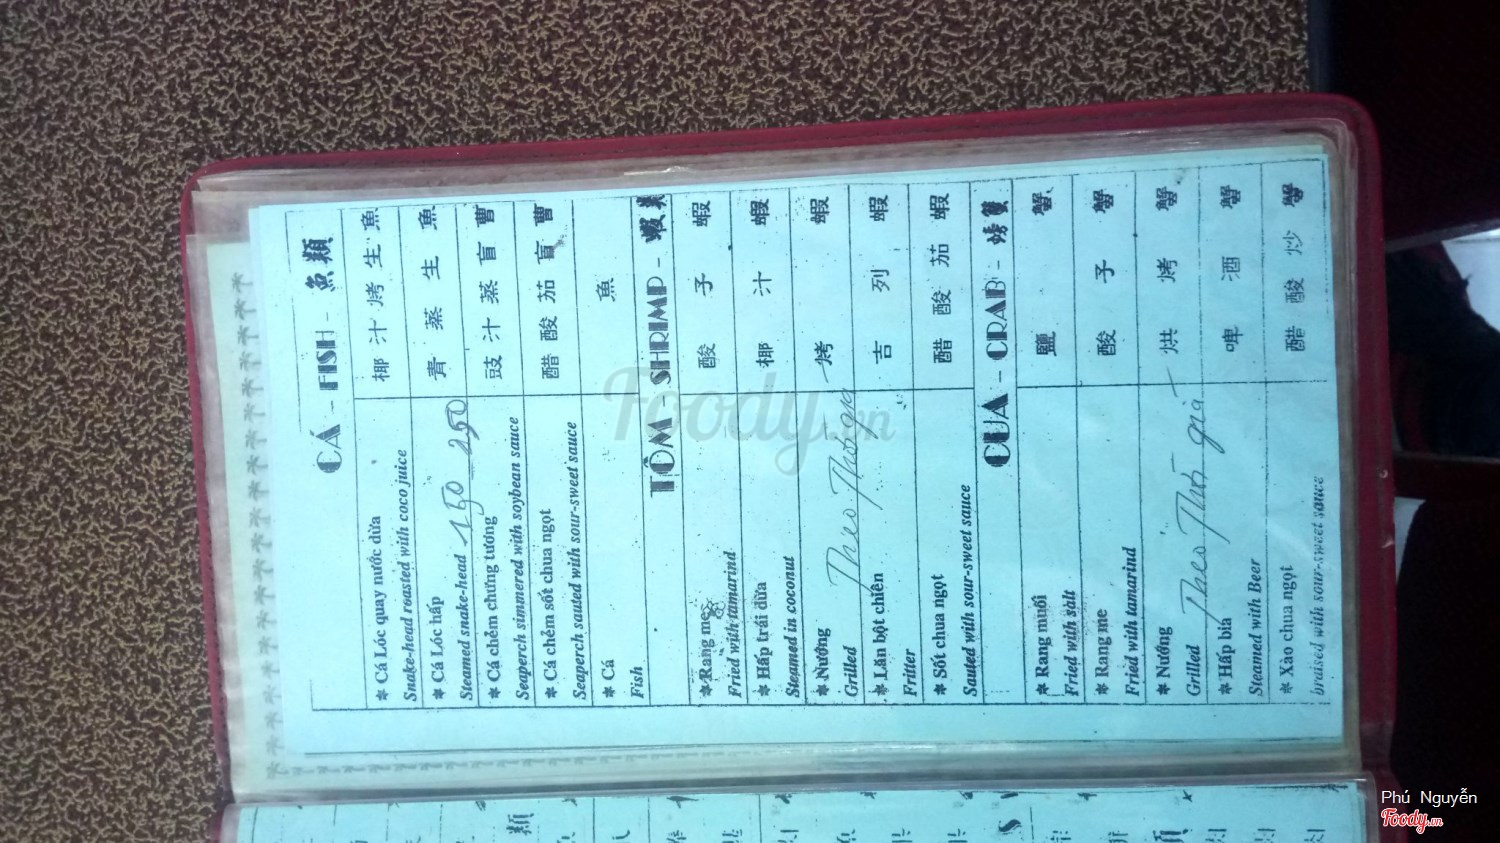 CÁ - FISH - 魚類
* Cá Lóc quay nước dừa 椰汁烤生魚
Snake-head roasted with coco juice
* Cá Lóc hấp 青蒸生魚
Steamed snake-head 150 - 250
* Cá chẻm chưng tương 豉汁蒸盲曹
Seaperch simmered with soybean sauce
* Cá chẻm sốt chua ngọt 醋酸茄盲曹
Seaperch sauted with sour-sweet sauce
* Cá 魚
Fish
TÔM - SHRIMP - 蝦類
* Rang me 酸子蝦
Fried with tamarind
* Hấp trái dừa 椰汁蝦
Steamed in coconut
* Nướng 烤蝦
Grilled Theo Thời giá
* Lăn bột chiên 吉列蝦
Fritter
* Sốt chua ngọt 醋酸茄蝦
Sauted with sour-sweet sauce
CUA - CRAB - 螃蟹
* Rang muối 鹽蟹
Fried with salt
* Rang me 酸子蟹
Fried with tamarind
* Nướng 烘烤蟹
Grilled Theo Thời giá
* Hấp bia 啤酒蟹
Steamed with Beer
* Xào chua ngọt 醋酸炒蟹
braised with sour-sweet sauce
類
Foody.vn
Phú Nguyễn
Foody.vn